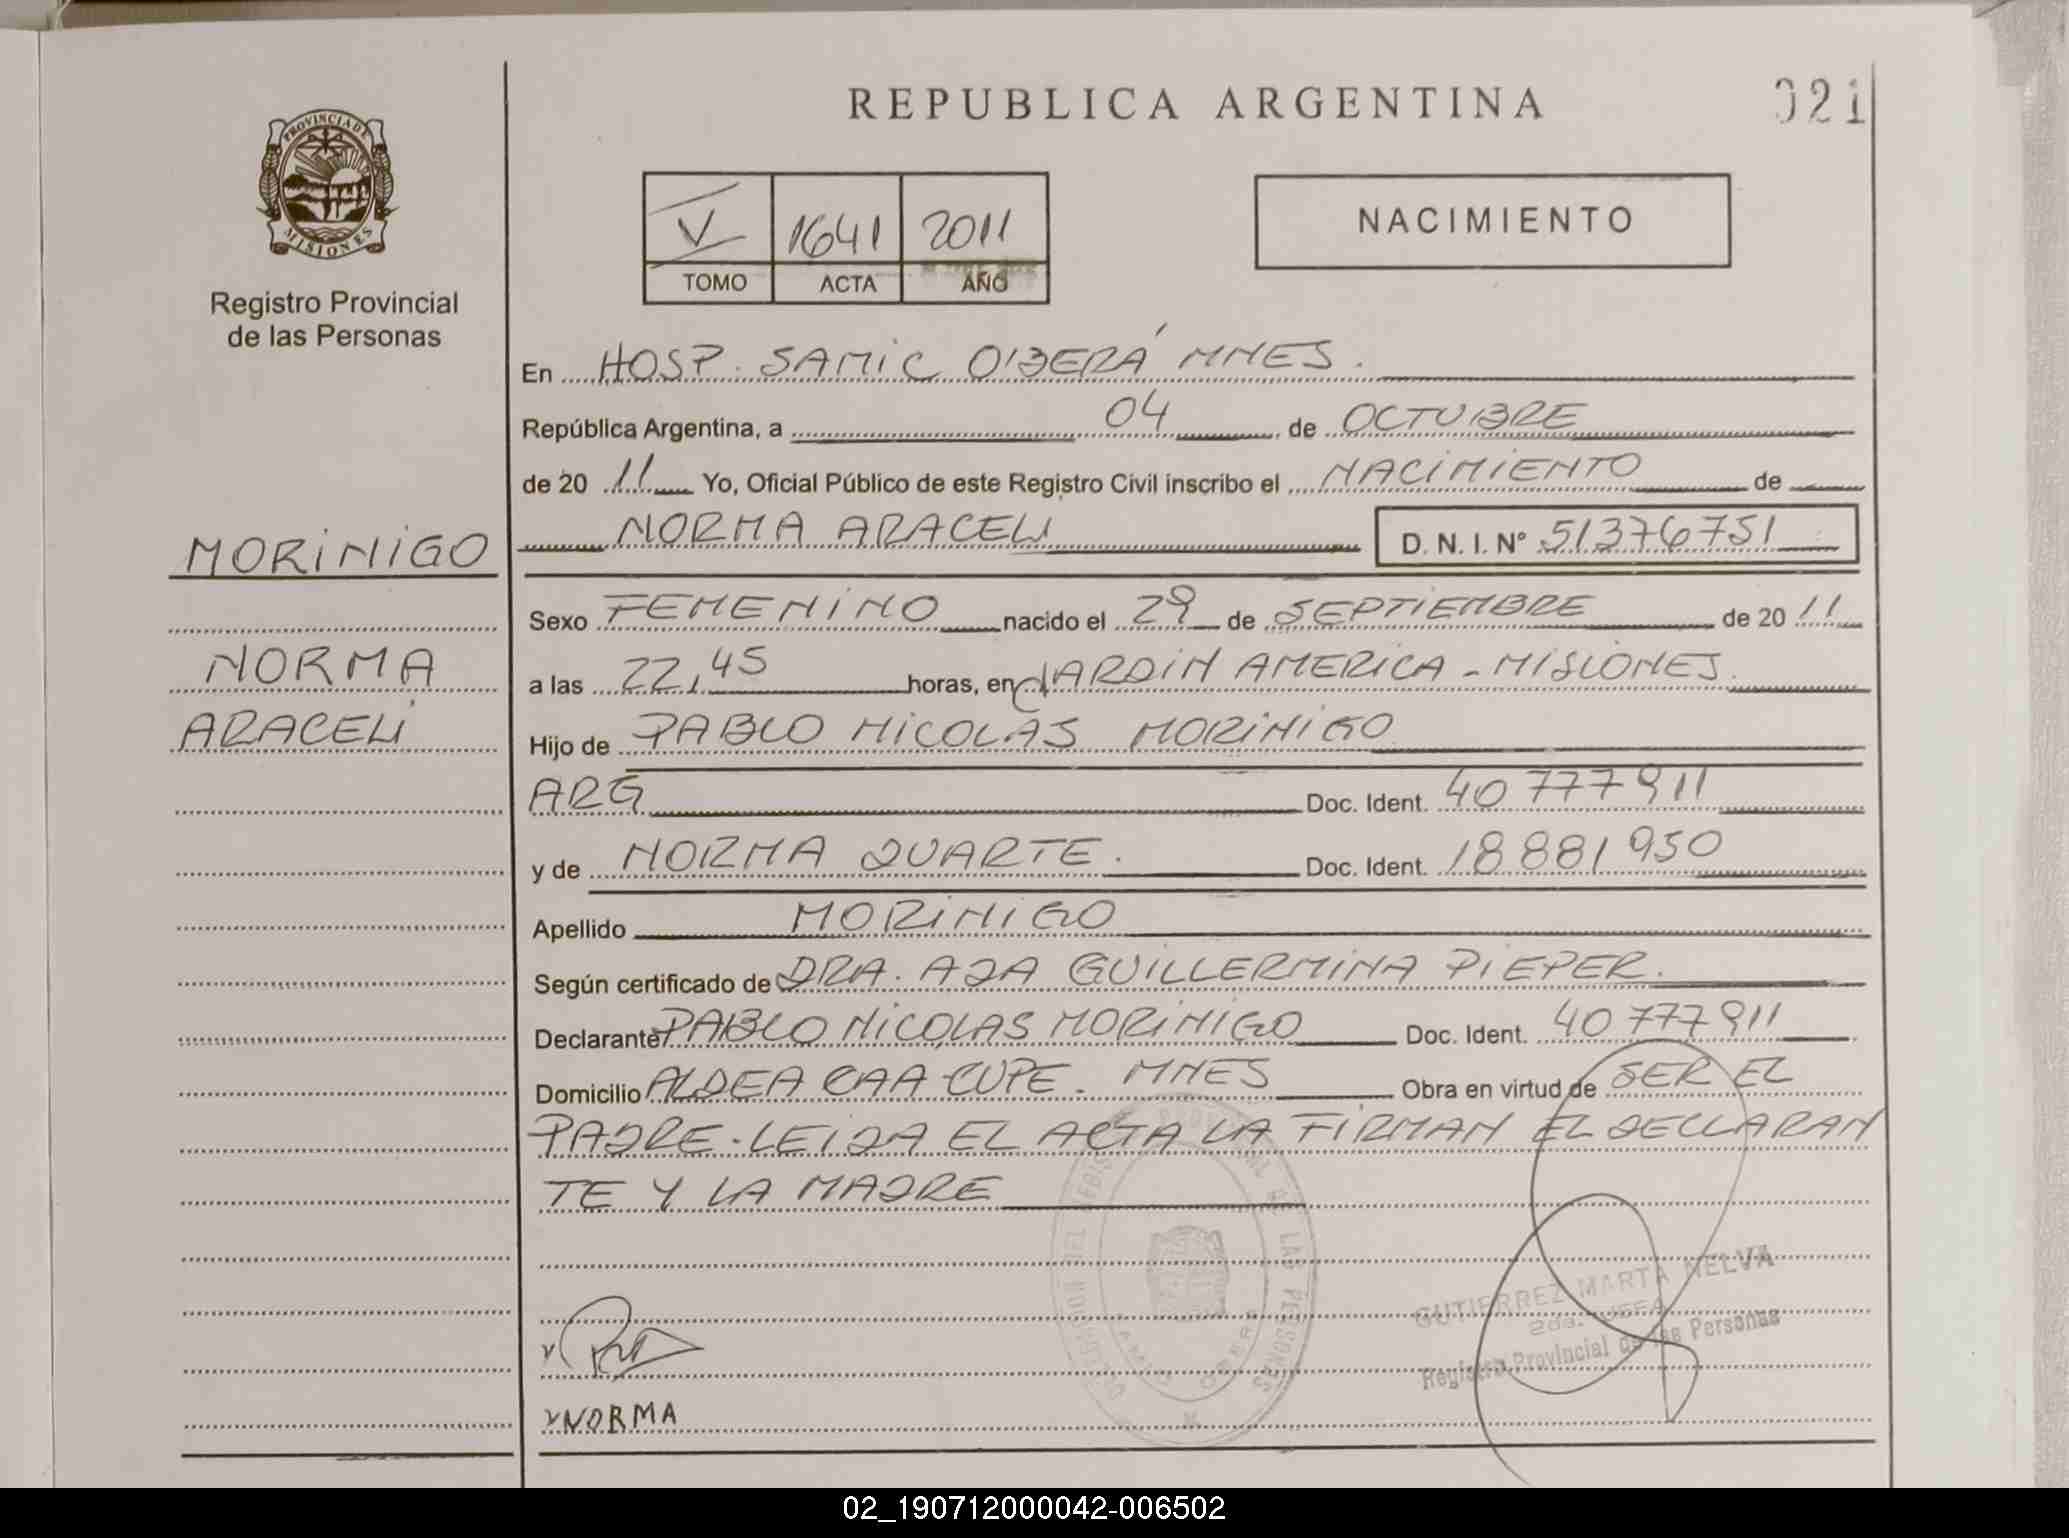 REPUBLICA ARGENTINA
021
PROVINCIA DE
MISIONES
Registro Provincial
de las Personas
V 1641 2011
TOMO ACTA AÑO
NACIMIENTO
En HOSP. SAMIC OBERÁ MNES.
República Argentina, a 04 de OCTUBRE
de 20 11 Yo, Oficial Público de este Registro Civil inscribo el NACIMIENTO de
NORMA ARACELI D. N. I. Nº 51376751
MORINIGO
NORMA
ARACELI
Sexo FEMENINO nacido el 29 de SEPTIEMBRE de 20 11
a las 22,45 horas, en JARDIN AMERICA - MISIONES
Hijo de PABLO NICOLAS MORINIGO
ARG Doc. Ident. 40777911
y de NORMA DUARTE. Doc. Ident. 18881950
Apellido MORINIGO
Según certificado de DRA. ADA GUILLERMINA PIEPER.
Declarante PABLO NICOLAS MORINIGO Doc. Ident. 40777911
Domicilio ALDEA CAA-CUPE. MNES Obra en virtud de SER EL
PADRE. LEIDA EL ACTA LA FIRMAN EL DECLARAN
TE Y LA MADRE
GUTIERREZ MARTA NELVA
2da. JEFA
Registro Provincial de las Personas
NORMA
02_190712000042-006502